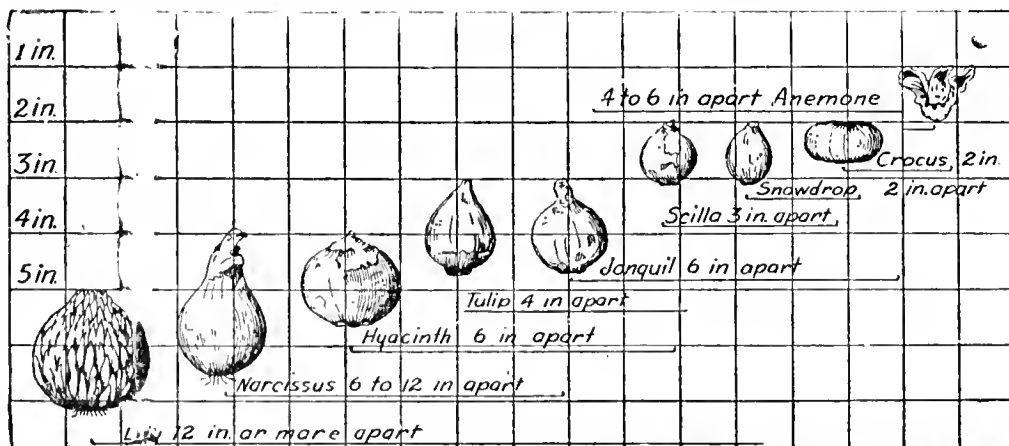 1 in.
2 in.
4 to 6 in apart Anemone
3 in.
Crocus, 2 in.
Snowdrop, 2 in. apart
4 in.
Scilla 3 in. apart
5 in.
Jonquil 6 in apart
Tulip 4 in apart
Hyacinth 6 in apart
Narcissus 6 to 12 in apart
Lily 12 in. or more apart